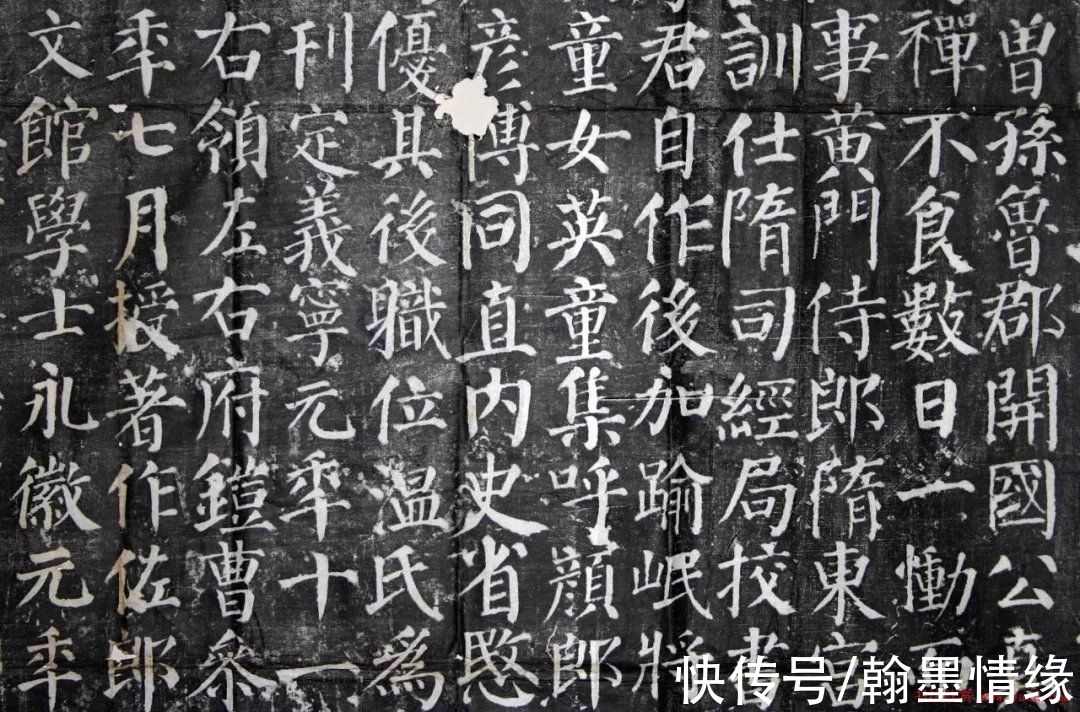 曾孫魯郡開國公真
禪不食數日一慟
事黃門侍郎隋東宮
訓仕隋司經局挍書
君自作後加踰岷將
童女英童集呼顏郎
彥博同直內史省愍
優其後職位溫氏爲
刊定義寧元年十一
右領左右府鎧曹參
年七月授著作佐郎
文館學士永徽元年
快传号/翰墨情缘